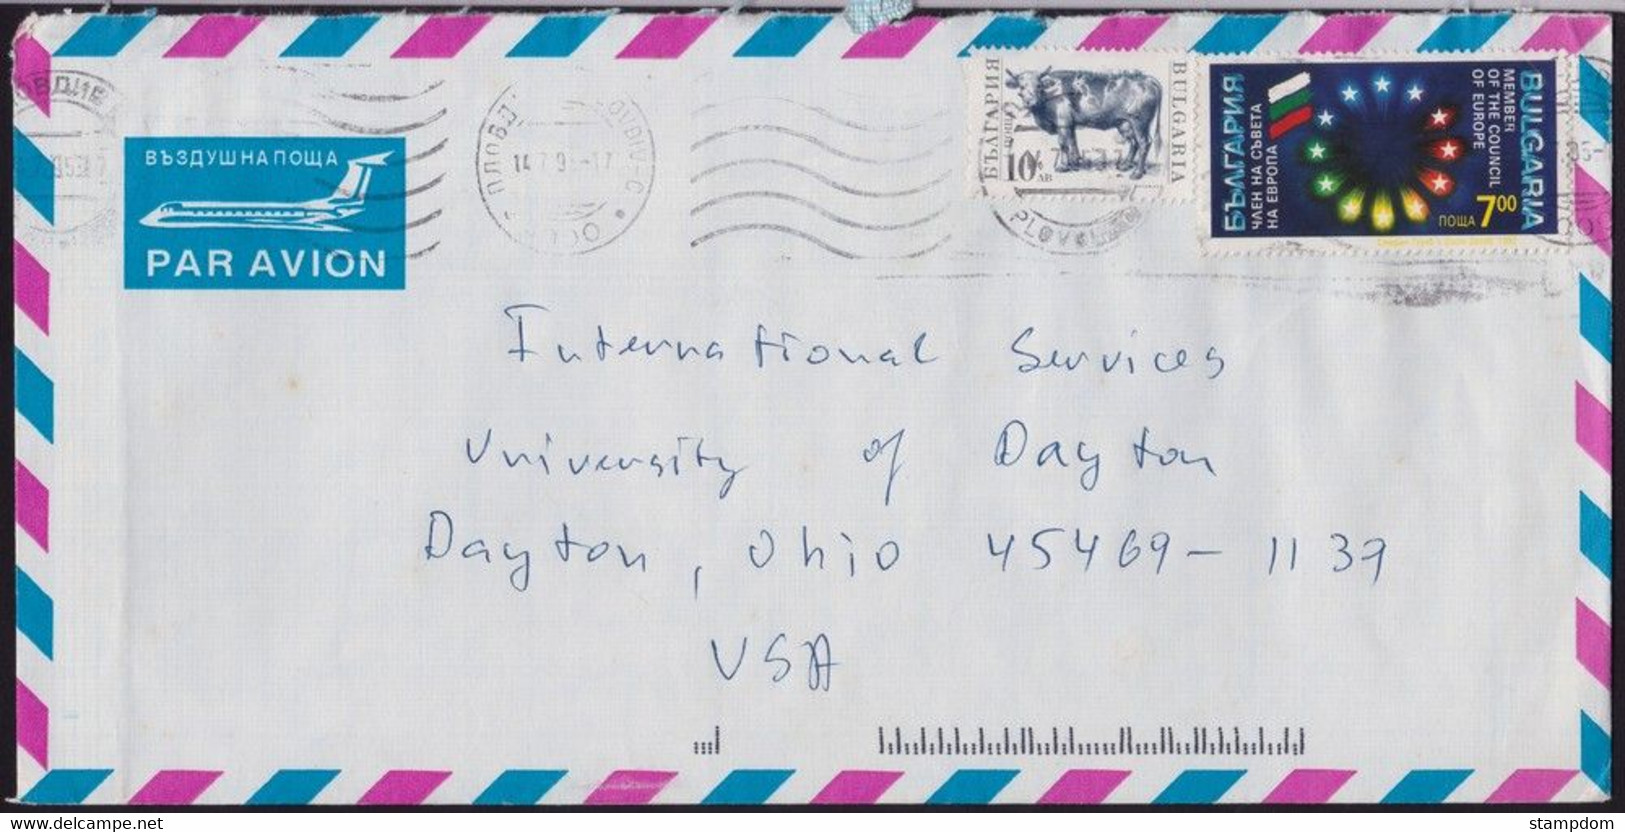 ВЪЗДУШНА ПОЩА
PAR AVION
ПЛОВД
14.7.9
БЪЛГАРИЯ
BULGARIA
10 ЛВ
БЪЛГАРИЯ
ЧЛЕН НА СЪВЕТА
НА ЕВРОПА
MEMBER
OF THE COUNCIL
OF EUROPE
BULGARIA
ПОЩА 7 00
International Services
University of Dayton
Dayton, Ohio 45469-1139
USA
www.delcampe.net
stampdom